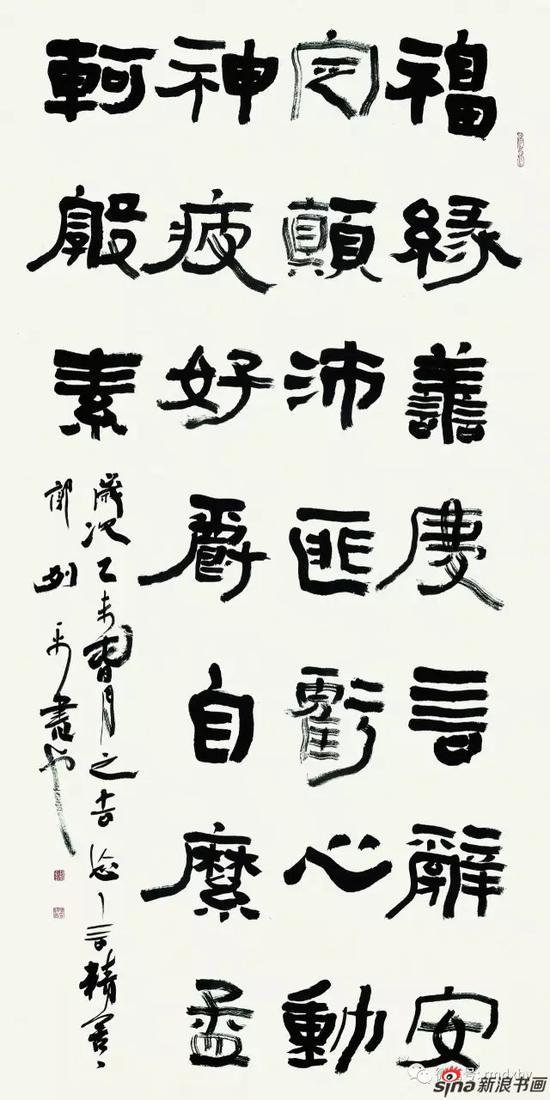 福緣譱慶言辭安
定顛沛匪虧心動
神疲好爵自縻孟
軻敦素
歲次乙未 月之吉 言精舍
郭列平書
sina新浪书画